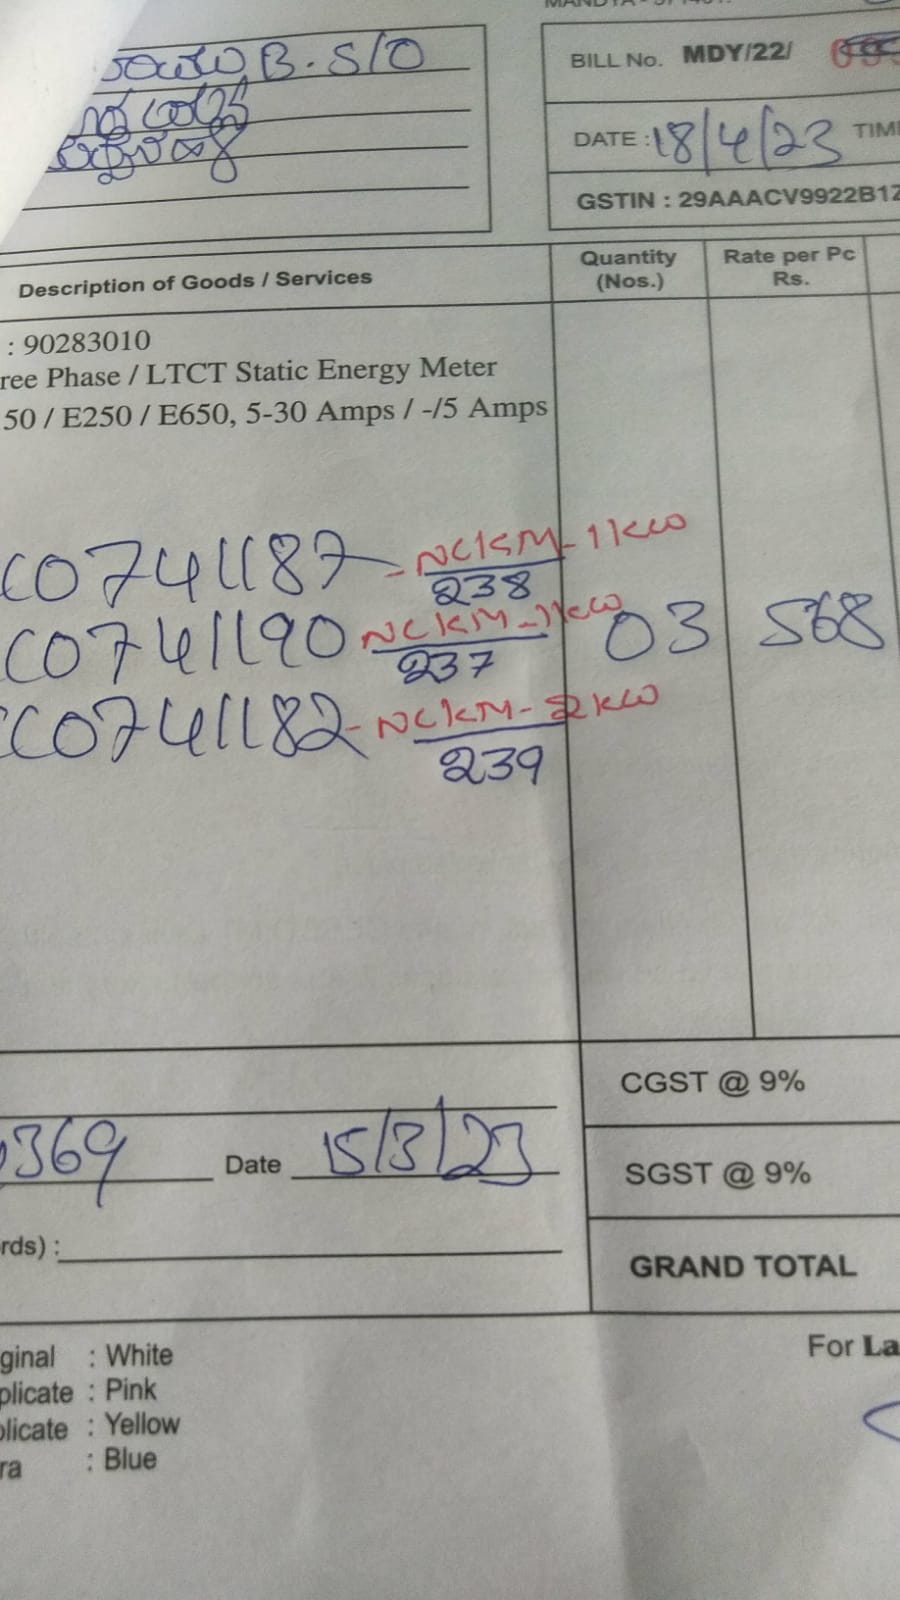 B. S/O
BILL No. MDY/22/
DATE : 18/4/23 TIM
GSTIN : 29AAACV9922B1Z
Description of Goods / Services
Quantity
(Nos.)
Rate per Pc
Rs.
: 90283010
ree Phase / LTCT Static Energy Meter
50 / E250 / E650, 5-30 Amps / -/5 Amps
C0741187 - NCKM - 1KW
238
C0741190 NCKM - 1KW
237
03 568
C0741182 - NCKM - 2KW
239
CGST @ 9%
369 Date 15/3/23
SGST @ 9%
rds) :
GRAND TOTAL
ginal : White
plicate : Pink
plicate : Yellow
ra : Blue
For La